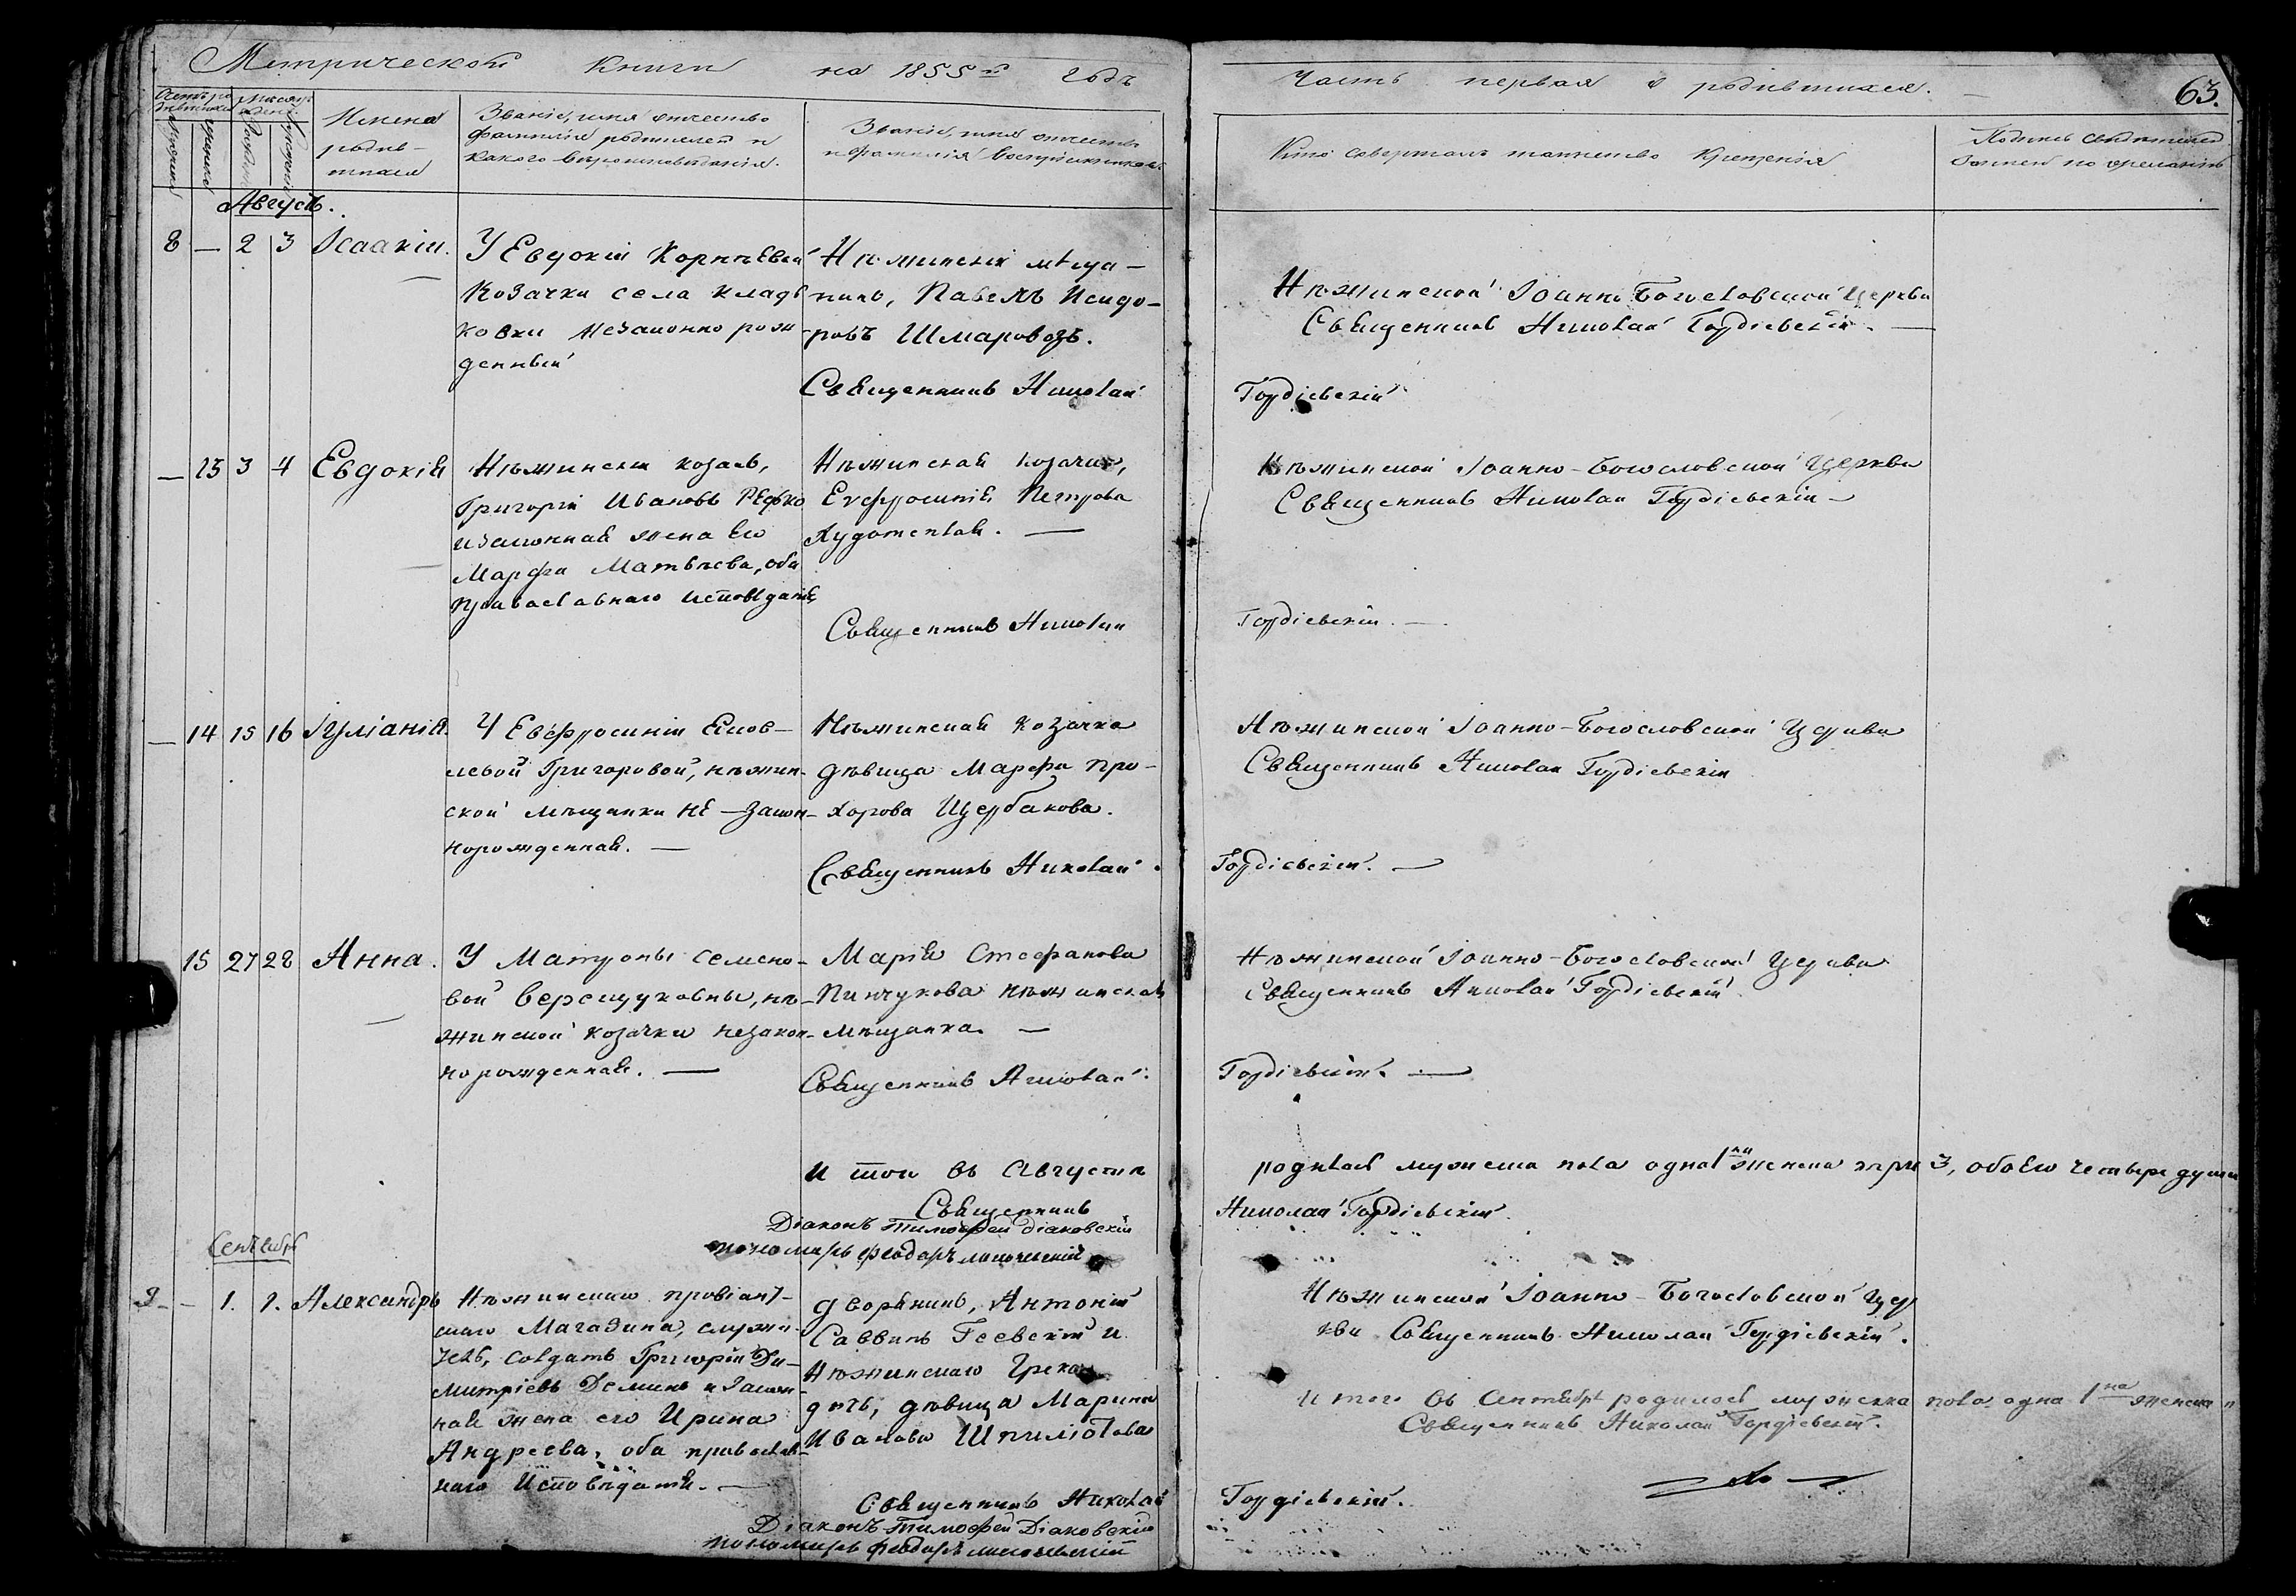 Метрической Книги на 1855й годъ
Часть первая о родившихся.
63.
Имена
родив-
шихся
Званіе, имя отчество
фамилія родителей и
какого вѣроисповѣданія.
Званіе, имя отчество
и фамилія воспріемниковъ.
Кто совершалъ таинство Крещенія
Августъ.
8 — 2 3 Ісаакій.
У Евдокіи Корнѣевой
Козачки села Кладь
ковки незаконно рож
денный
Нѣжинскій мѣща-
нинъ, Павелъ Исидо-
ровъ Шмаровозъ.
Священникъ Николай
Нѣжинской Іоанно Богословской Церкви
Священникъ Николай Гордіевскій. —
Гордіевскій
— 13 3 4 Евдокія
Нѣжинскій козакъ,
Григорій Ивановъ Редько
и законная жена его
Марфа Матвѣева, оба
православнаго исповѣданія,
Нѣжинская козачка,
Евфросинія Петрова
Худотеплая. —
Священникъ Николай
Нѣжинской Іоанно-Богословской Церкви
Священникъ Николай Гордіевскій —
Гордіевскій. —
— 14 15 16 Іуліанія.
У Евфросиніи
Григоровой, нѣжин-
ской мѣщанки не-закон-
норожденная. —
Нѣжинская козачка
дѣвица Марфа Про-
хорова Щербакова.
Священникъ Николай.
Нѣжинской Іоанно-Богословской Церкви
Священникъ Николай Гордіевскій
Гордіевскій. —
15 27 28 Анна.
У Матроны Семено-
вой Верещуковны, нѣ-
жинской козачки незакон-
норожденная. —
Марія Стефанова
Пинчукова нѣжинская
мѣщанка. —
Священникъ Николай.
Нѣжинской Іоанно-Богословской Церкви
Священникъ Николай Гордіевскій
Гордіевскій. —
Итого въ Августѣ
родилось мужеска пола одна 1 женска три 3, обоего четыре души
Священникъ
Николай Гордіевскій.
Діаконъ Тимофей Діаковскій
пономарь Феодоръ
Сентябрь
9 — 1. 1. Александръ
Нѣжинскаго провіант-
скаго Магазина, служи-
тель, солдатъ Григорій Ди-
митріевъ Деминъ и закон-
ная жена его Ирина
Андреева, оба православ-
наго исповѣданія. —
дворянинъ, Антоній
Саввинъ Геевскій и
Нѣжинскаго Грека
дочь, дѣвица Марина
Иванова
Священникъ Николай
Діаконъ Тимофей Діаковскій
пономарь Феодоръ
Нѣжинской Іоанно-Богословской Цер
кви Священникъ Николай Гордіевскій.
Итого въ Сентябрѣ родилось мужеска пола одна 1 женска
Священникъ Николай Гордіевскій.
Гордіевскій.